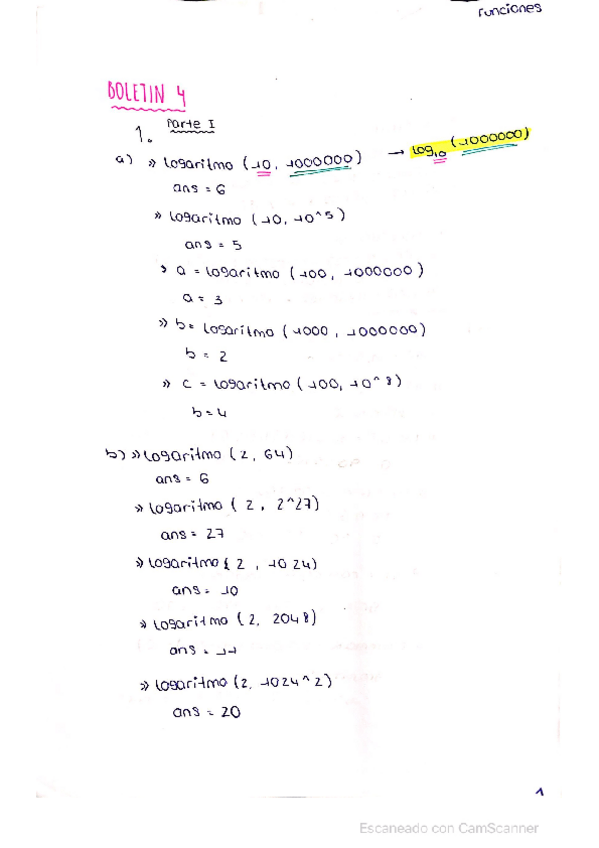 Funciones
BOLETIN 4
Parte I
1.
a) » logaritmo (10, 1000000) → log10 (1000000)
ans = 6
» logaritmo (10, 10^5)
ans = 5
» a = logaritmo (100, 1000000)
a = 3
» b = logaritmo (1000, 1000000)
b = 2
» c = logaritmo (100, 10^8)
b = 4
b) » logaritmo (2, 64)
ans = 6
» logaritmo (2, 2^27)
ans = 27
» logaritmo (2, 1024)
ans = 10
» logaritmo (2, 2048)
ans = 11
» logaritmo (2, 1024^2)
ans = 20
1
Escaneado con CamScanner